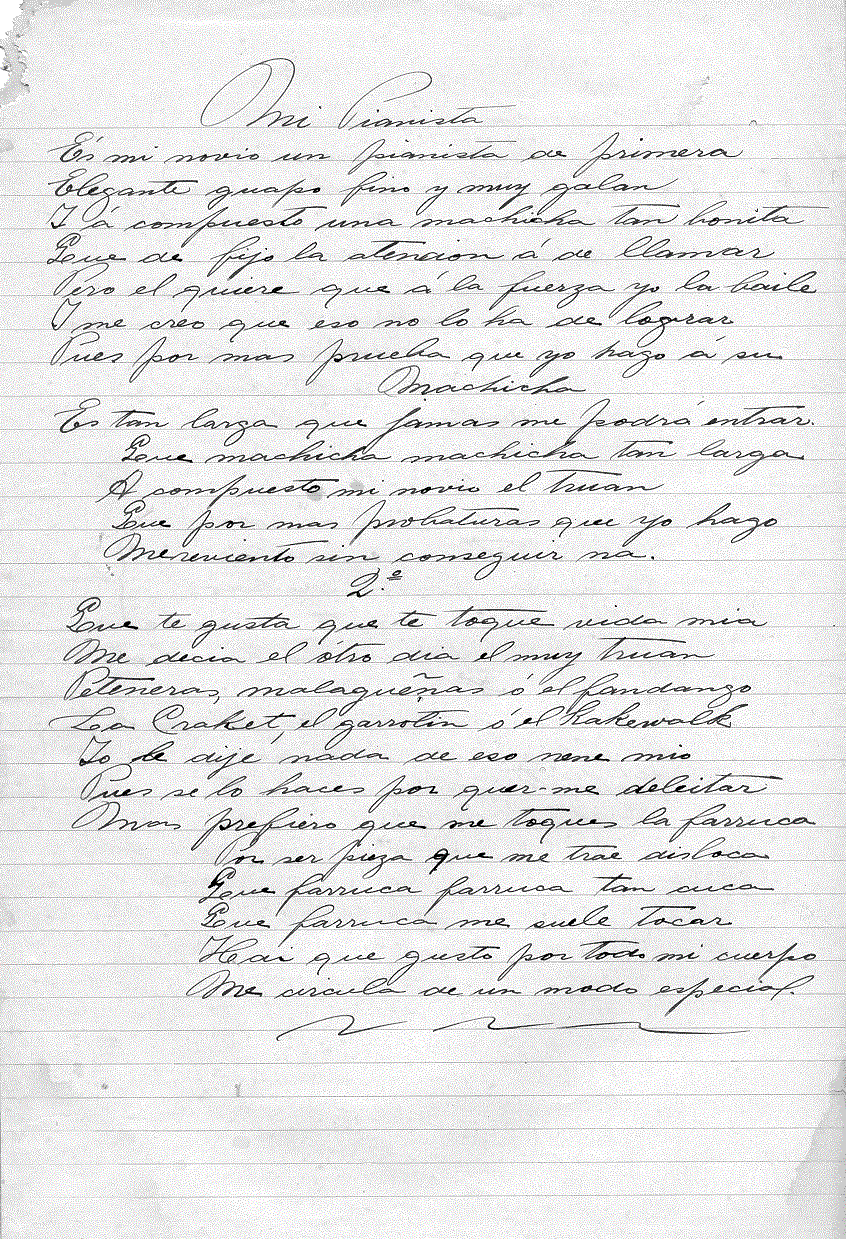 Mi Pianista
És mi novio un pianista de primera
Elegante guapo fino y muy galan
I á compuesto una machicha tan bonita
Que de fijo la atencion á de llamar
Pero el quiere que á la fuerza yo la baile
I me creo que eso no lo ha de lograr
Pues por mas prueba que yo hago á su
Machicha
Es tan larga que jamas me podrá entrar.
Que machicha machicha tan larga
A compuesto mi novio el truan
Que por mas probaturas que yo hago
Me reviento sin conseguir na.
2.º
Que te gusta que te toque vida mia
Me decia el ótro dia el muy truan
Peteneras, malagueñas ó el fandango
La Craket, el garrotin ó el kakewalk
Io le dije nada de eso nene mio
Pues se lo haces por quer-me deleitar
Mas prefiero que me toques la farruca
Por ser pieza que me trae disloca
Que farruca farruca tan cuca
Que farruca me suele tocar
Hai que gusto por todo mi cuerpo
Me circula de un modo especial.